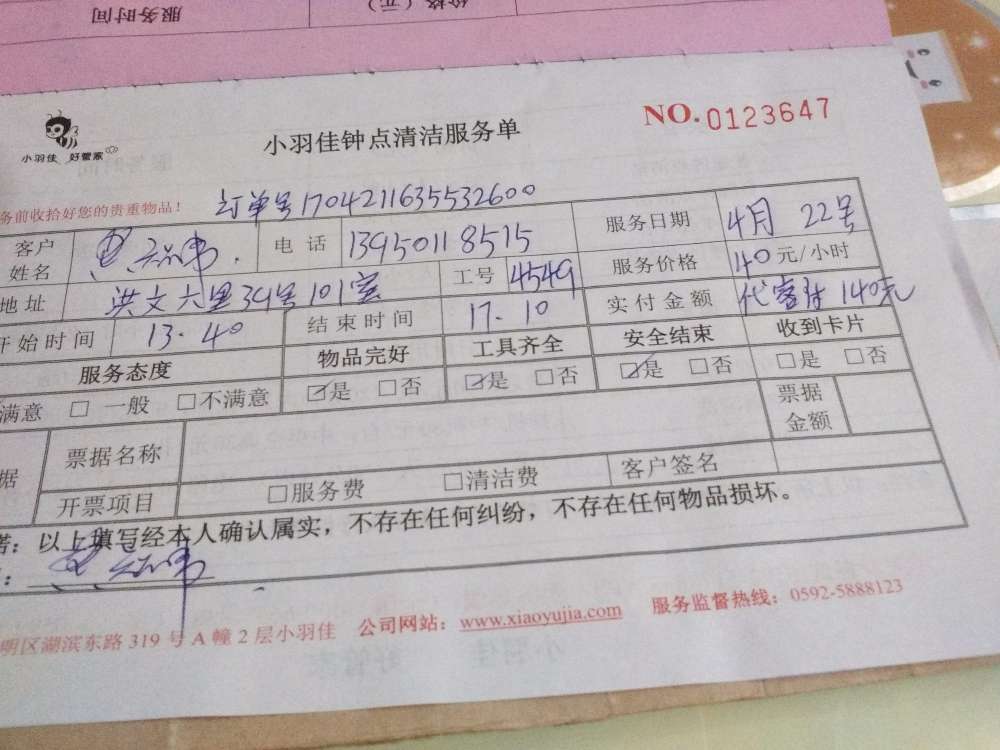 服务时间 价格（元）
小羽佳 好管家
小羽佳钟点清洁服务单
NO. 0123647
务前收拾好您的贵重物品！ 订单号1704211635532600
客户姓名 电话 13950118515 服务日期 4月 22号
地址 洪文六里39号101室 工号 4549 服务价格 40元/小时
开始时间 13.40 结束时间 17.10 实付金额 140元
服务态度 物品完好 工具齐全 安全结束 收到卡片
满意 □ 一般 □不满意 ☑是 □否 ☑是 □否 ☑是 □否 □是 □否
据 票据名称 票据金额
开票项目 □服务费 □清洁费 客户签名
诺：以上填写经本人确认属实，不存在任何纠纷，不存在任何物品损坏。
明区湖滨东路319号A幢2层小羽佳 公司网站：www.xiaoyujia.com 服务监督热线：0592-5888123